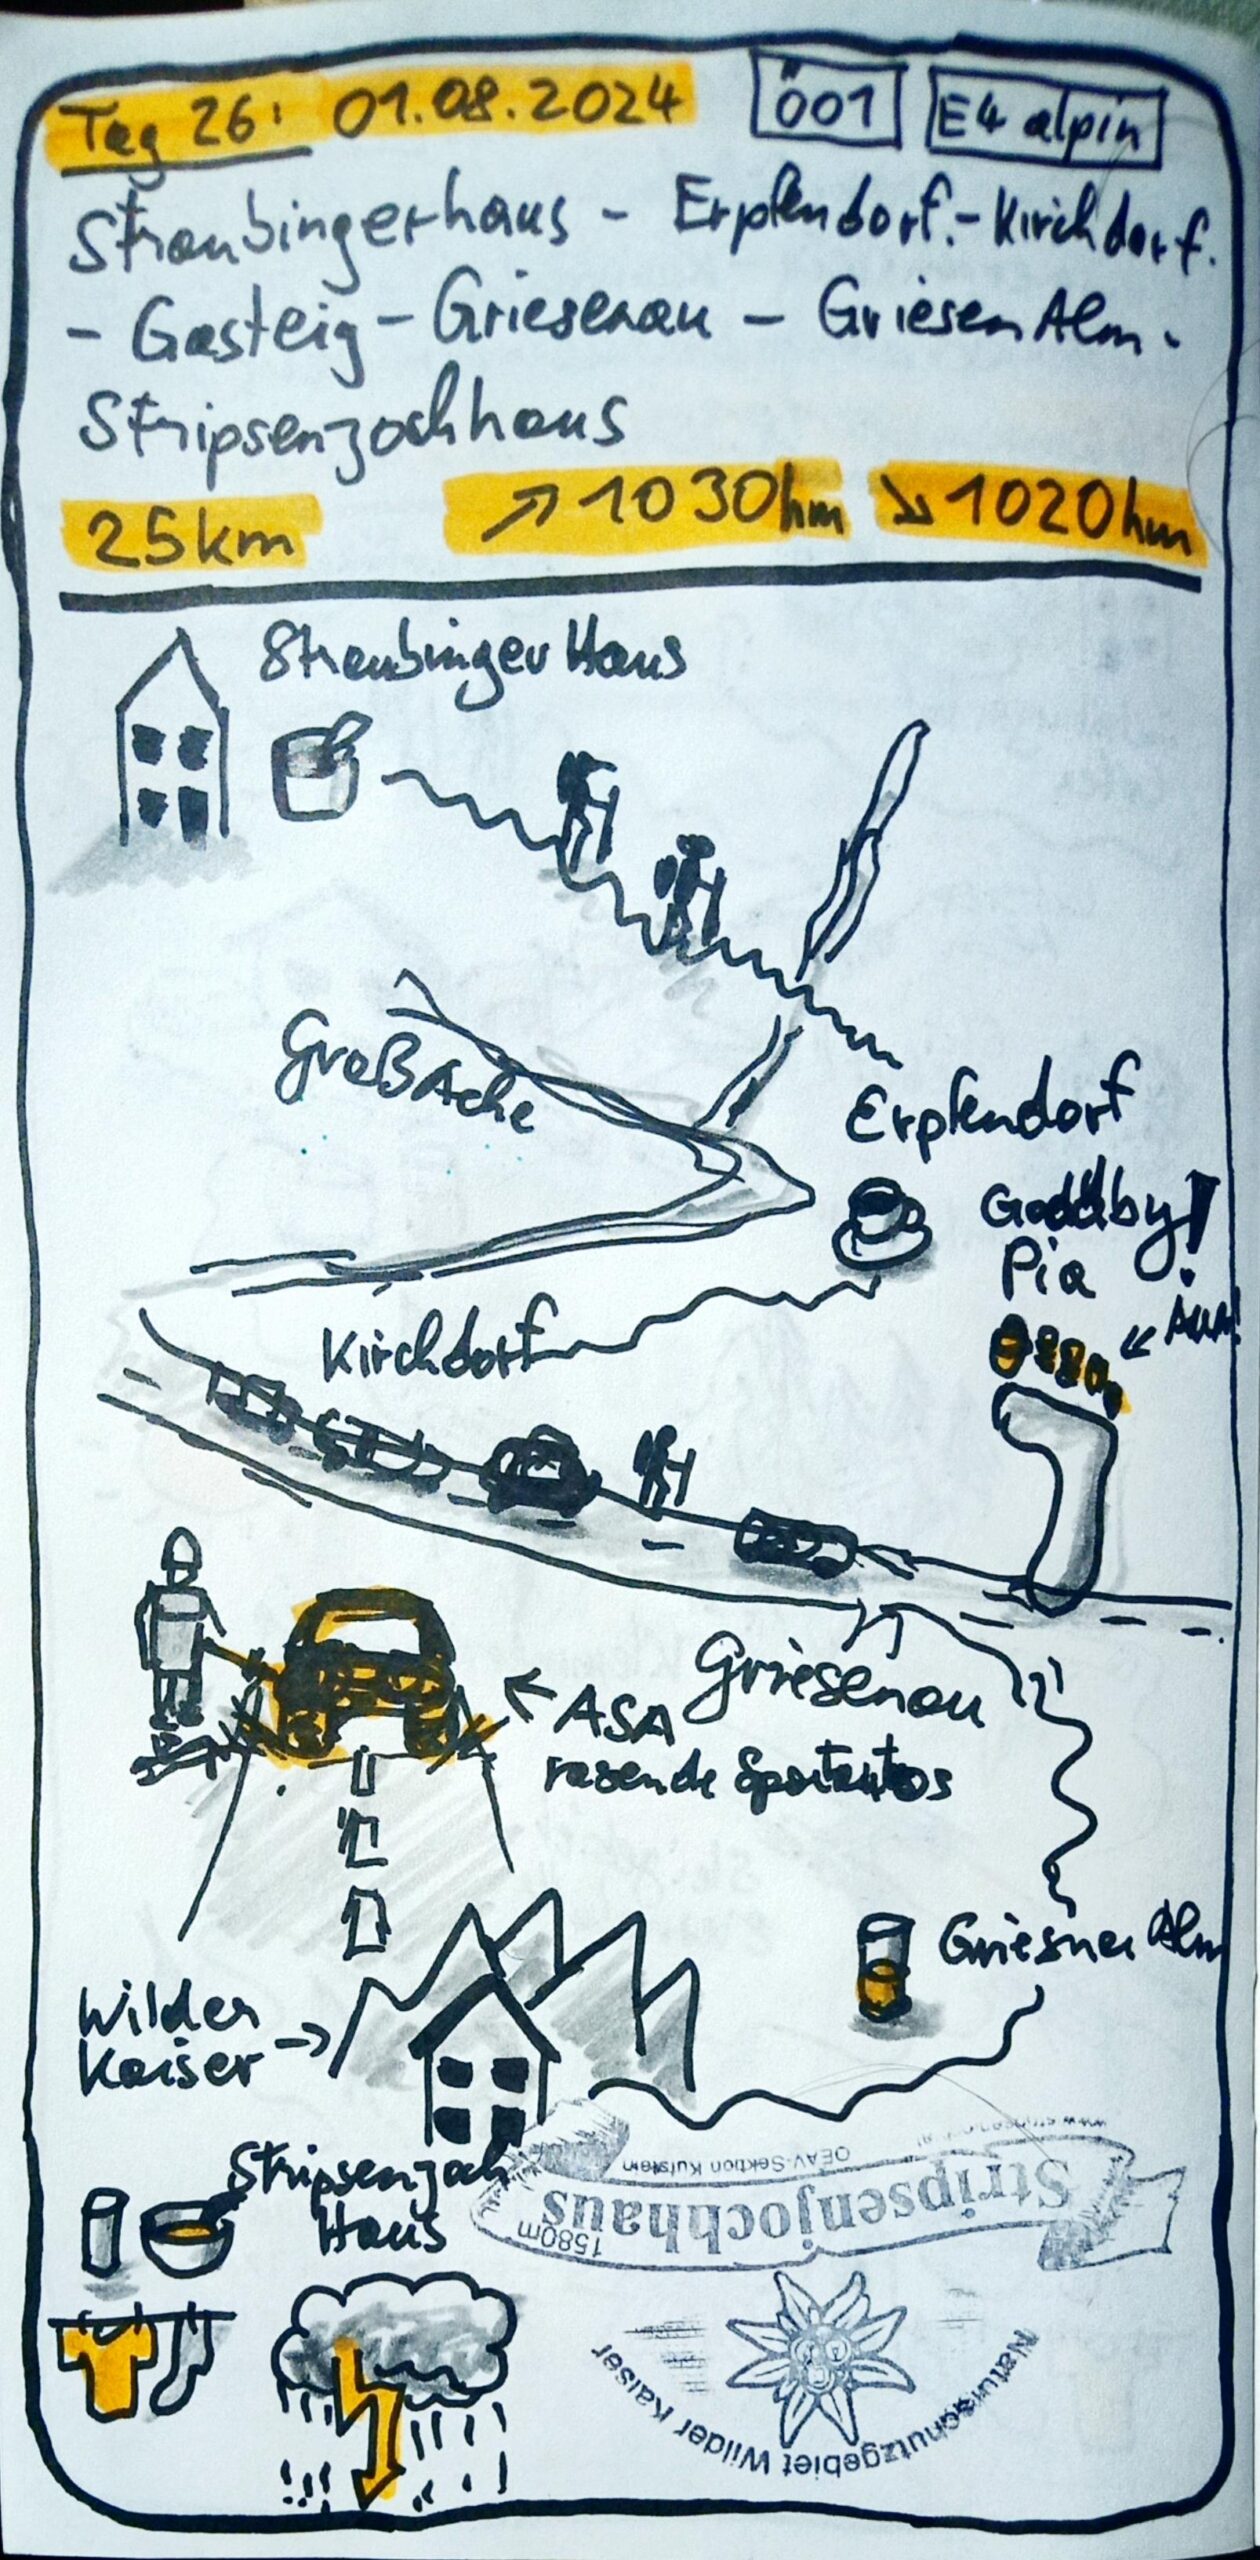 Tag 26: 01.08.2024 Ö01 E4 alpin
Straubingerhaus - Erpfendorf.- Kirchdorf.
- Gasteig - Griesenau - Griesen Alm -
Stripsenjochhaus
25km ↗ 1030hm ↘ 1020hm
Straubinger Haus
Großache
Erpfendorf
Goodby!
Pia
← AUA!
Kirchdorf
Griesenau
← ASA
rasende Sportautos
Griesner Alm
Wilder
Kaiser →
Stripsenjoch
Haus
ÖEAV-Sektion Kufstein
Stripsenjochhaus
1580m
Naturschutzgebiet Wilder Kaiser